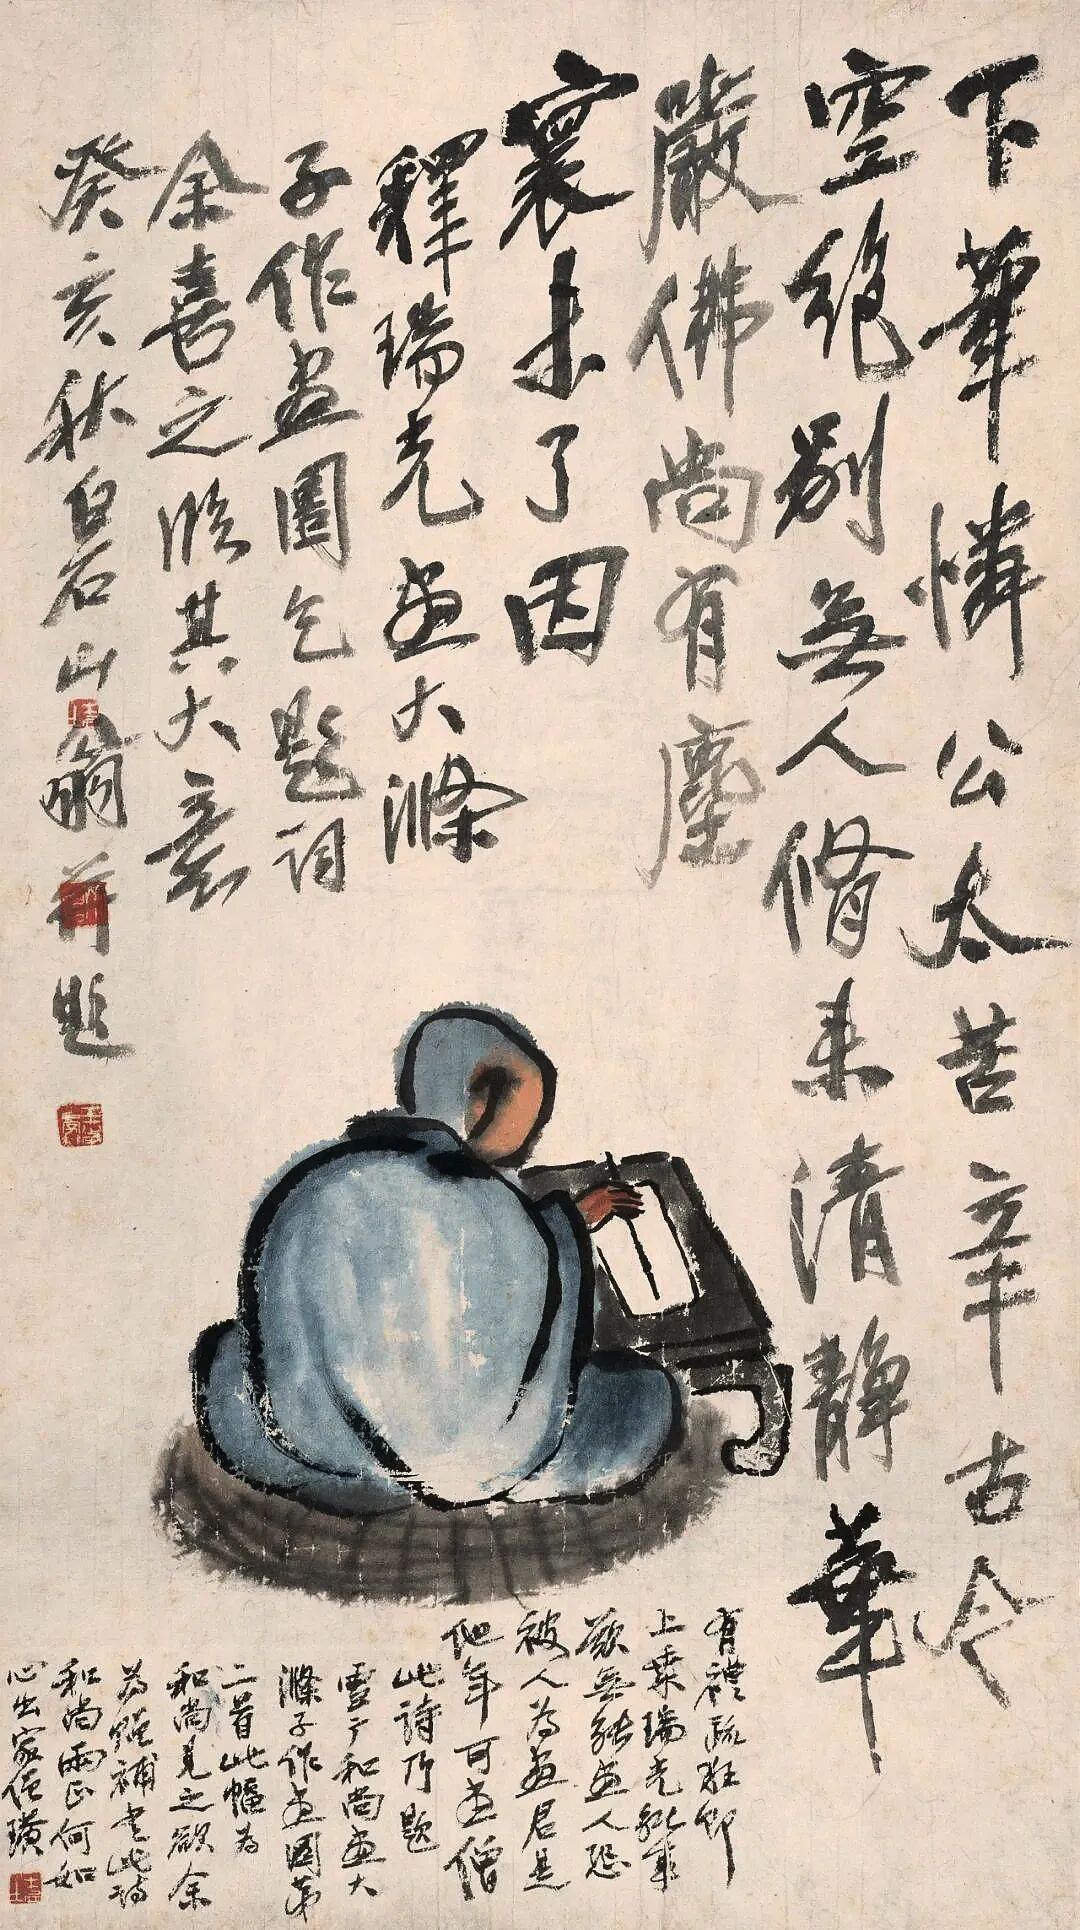 下筆憐公太苦辛古今
空絕別無人脩来清静華
嚴佛尚有塵
裏未了因
釋瑞光畫大滌
子作畫圖乞題詞
余喜之臨其大意
癸亥秋白石山翁并題
有禮疏狂即
上乘瑞光能事
欲無能畫人恐
被人為畫君是
他年可畫僧
此詩乃題
雪广和尚畫大
滌子作畫圖第
二首此幅為
和尚見之欲余
為補書此詩
和尚兩正何如
心出家僧璜